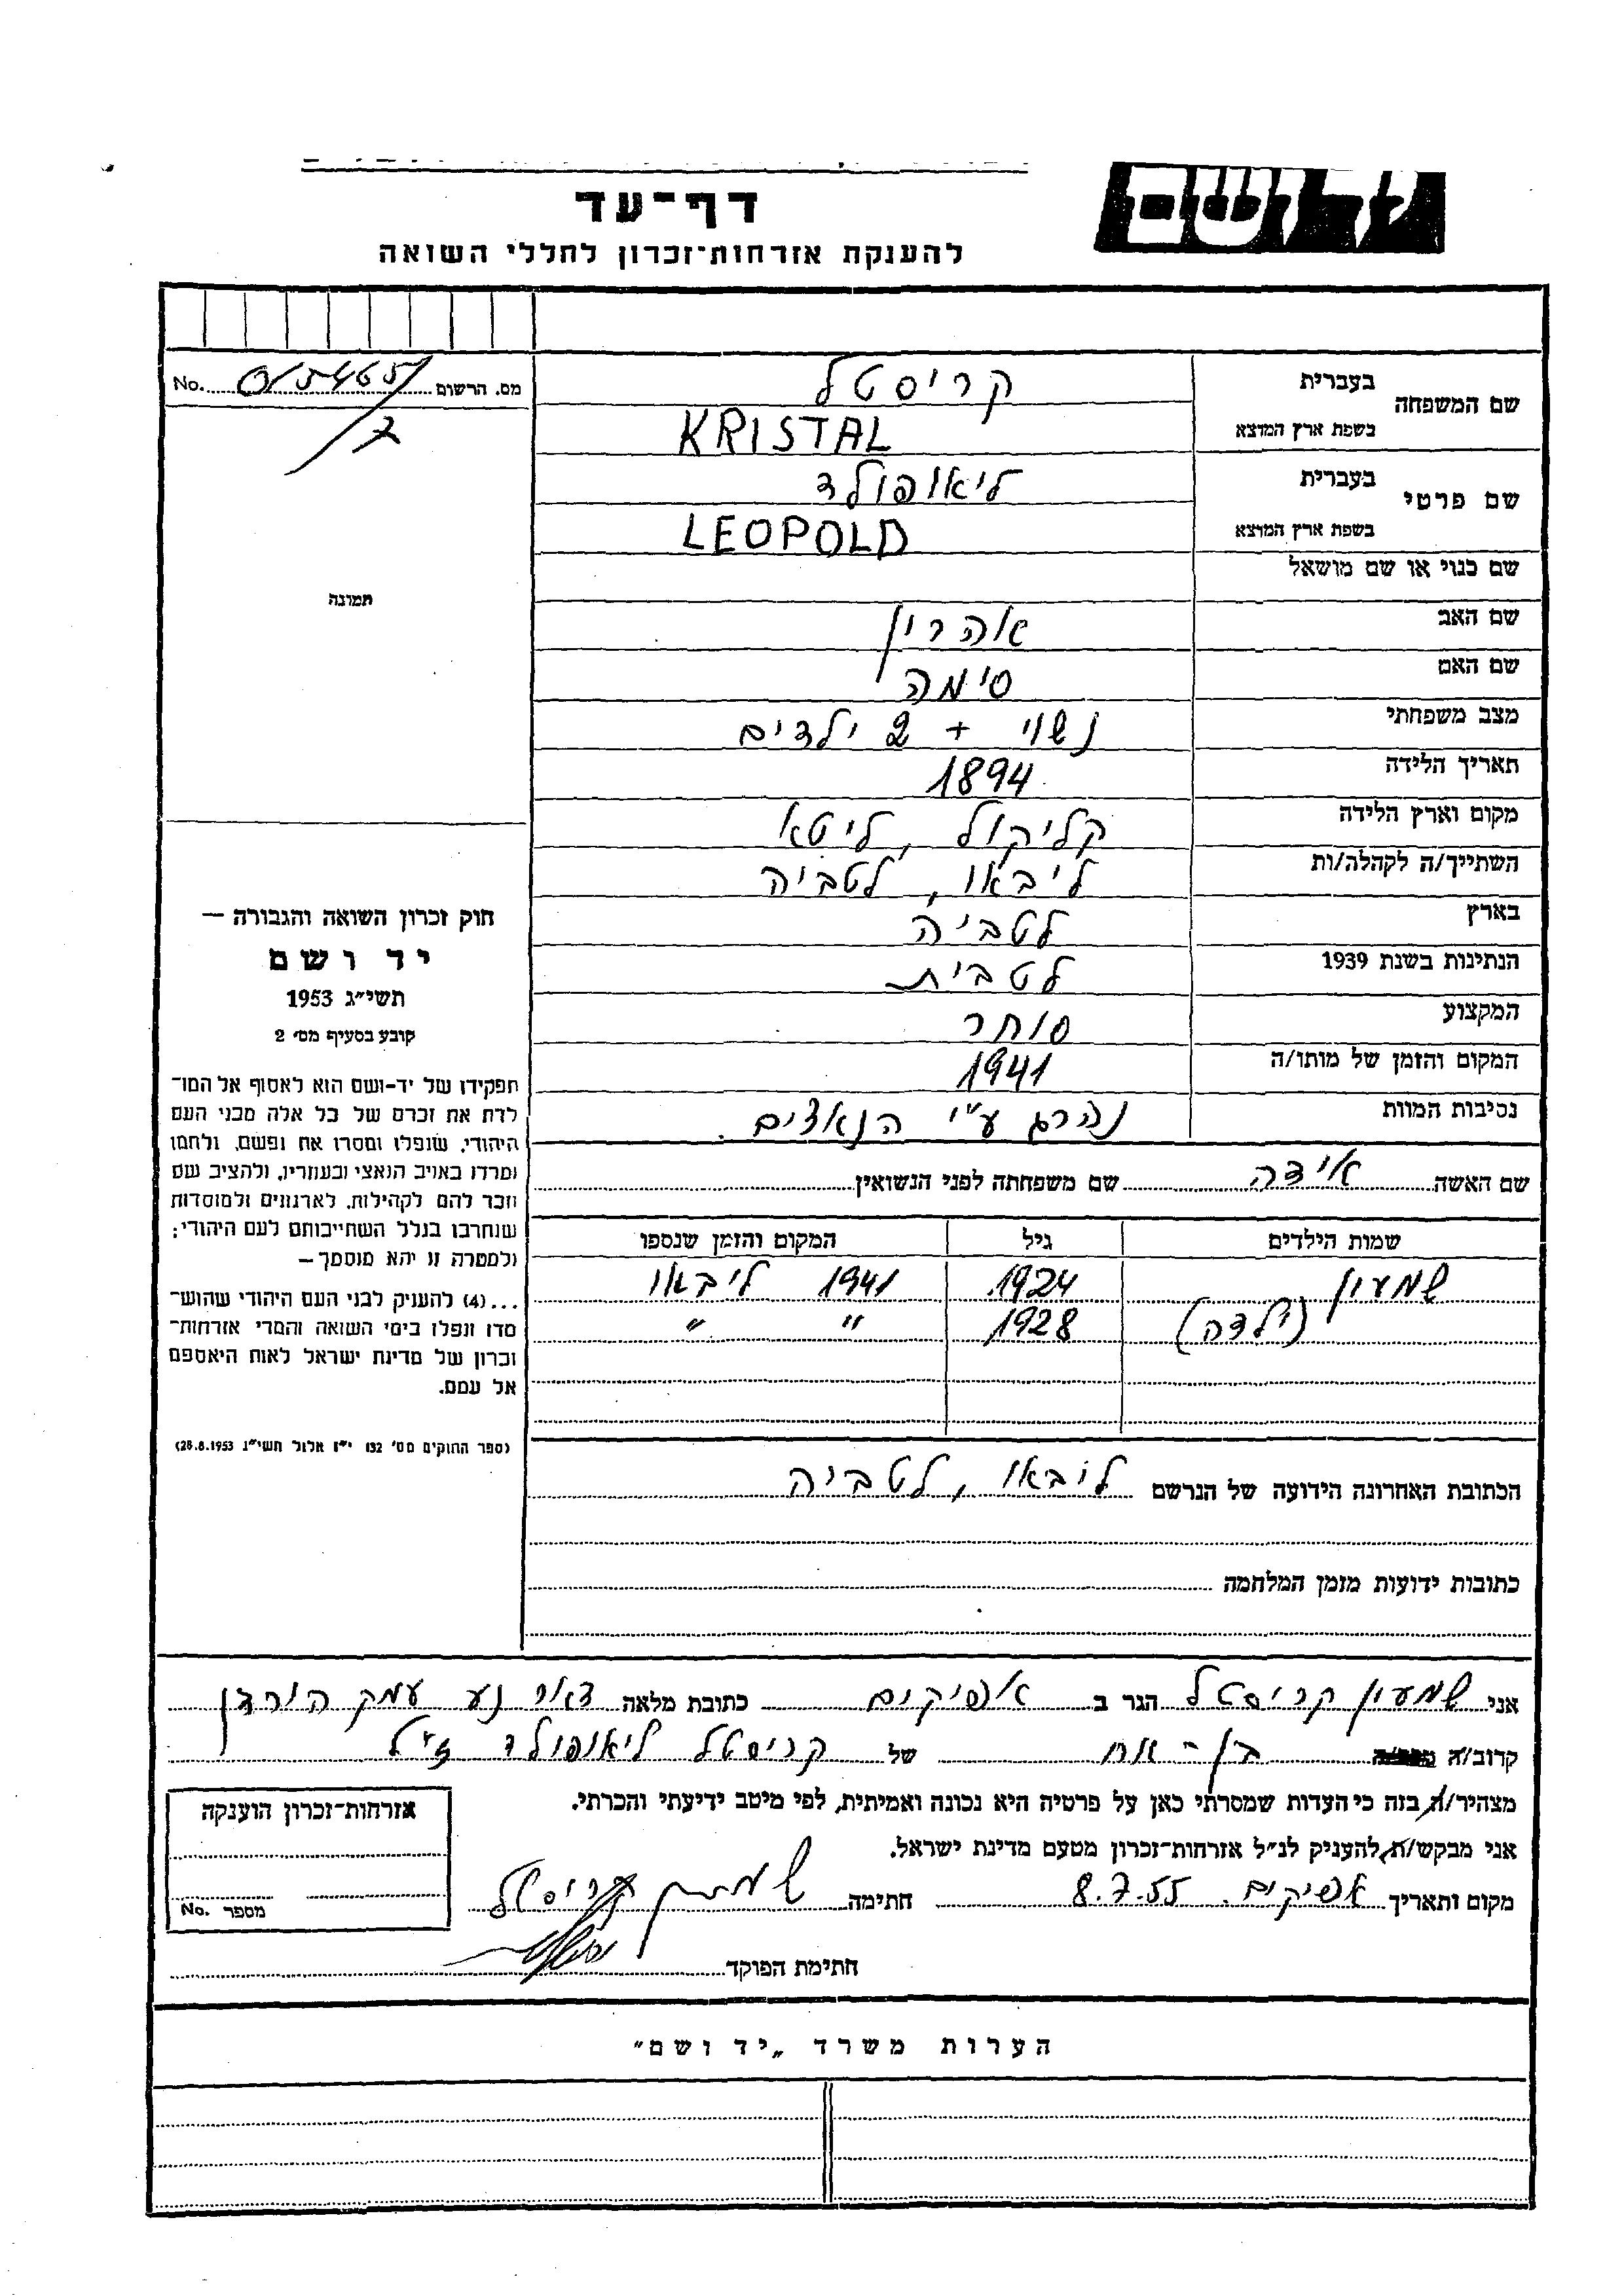 ידושם
דף־עד
להענקת אזרחות־זכרון לחללי השואה
שם המשפחה
בעברית
קריסטל
בשפת ארץ המוצא
KRISTAL
שם פרטי
בעברית
ליאופולד
בשפת ארץ המוצא
LEOPOLD
שם כנוי או שם מושאל
שם האב
אהרון
שם האם
סימה
מצב משפחתי
נשוי + 2 ילדים
תאריך הלידה
1894
מקום וארץ הלידה
קליקול, ליטא
השתייך/ה לקהלה/ות
ליבאו, לטביה
בארץ
לטביה
הנתינות בשנת 1939
לטבית
המקצוע
סוחר
המקום והזמן של מותו/ה
1941
נסיבות המוות
נהרג ע"י הנאצים.
שם האשה אידה שם משפחתה לפני הנשואין
שמות הילדים גיל המקום והזמן שנספו
שמעון 1924 1941 ליבאו
(ילדה) 1928 " "
הכתובת האחרונה הידועה של הנרשם ליבאו, לטביה
כתובות ידועות מזמן המלחמה
מס. הרשום No.
תמונה
חוק זכרון השואה והגבורה —
יד ושם
תשי"ג 1953
קובע בסעיף מס' 2
תפקידו של יד-ושם הוא לאסוף אל המו־
לדת את זכרם של כל אלה מבני העם
היהודי, שנפלו ומסרו את נפשם, ולחמו
ומרדו באויב הנאצי ובעוזריו, ולהציב שם
וזכר להם לקהילות, לארגונים ולמוסדות
שנחרבו בגלל השתייכותם לעם היהודי;
ולמטרה זו יהא מוסמך —
...(4) להעניק לבני העם היהודי שהוש־
מדו ונפלו בימי השואה והמרי אזרחות־
זכרון של מדינת ישראל לאות היאספם
אל עמם.
(ספר החוקים מס' 132 י"ז אלול תשי"ג 28.8.1953)
אני שמעון קריסטל הגר ב אפיקים כתובת מלאה דואר נע עמק הירדן
קרוב/ה בן-אח של קריסטל ליאופולד ז"ל
מצהיר/ה בזה כי העדות שמסרתי כאן על פרטיה היא נכונה ואמיתית, לפי מיטב ידיעתי והכרתי.
אני מבקש/ת להעניק לנ"ל אזרחות־זכרון מטעם מדינת ישראל.
מקום ותאריך אפיקים. 8.7.55 חתימה שמעון קריסטל
חתימת הפוקד
אזרחות־זכרון הוענקה
מספר No.
הערות משרד „יד ושם"